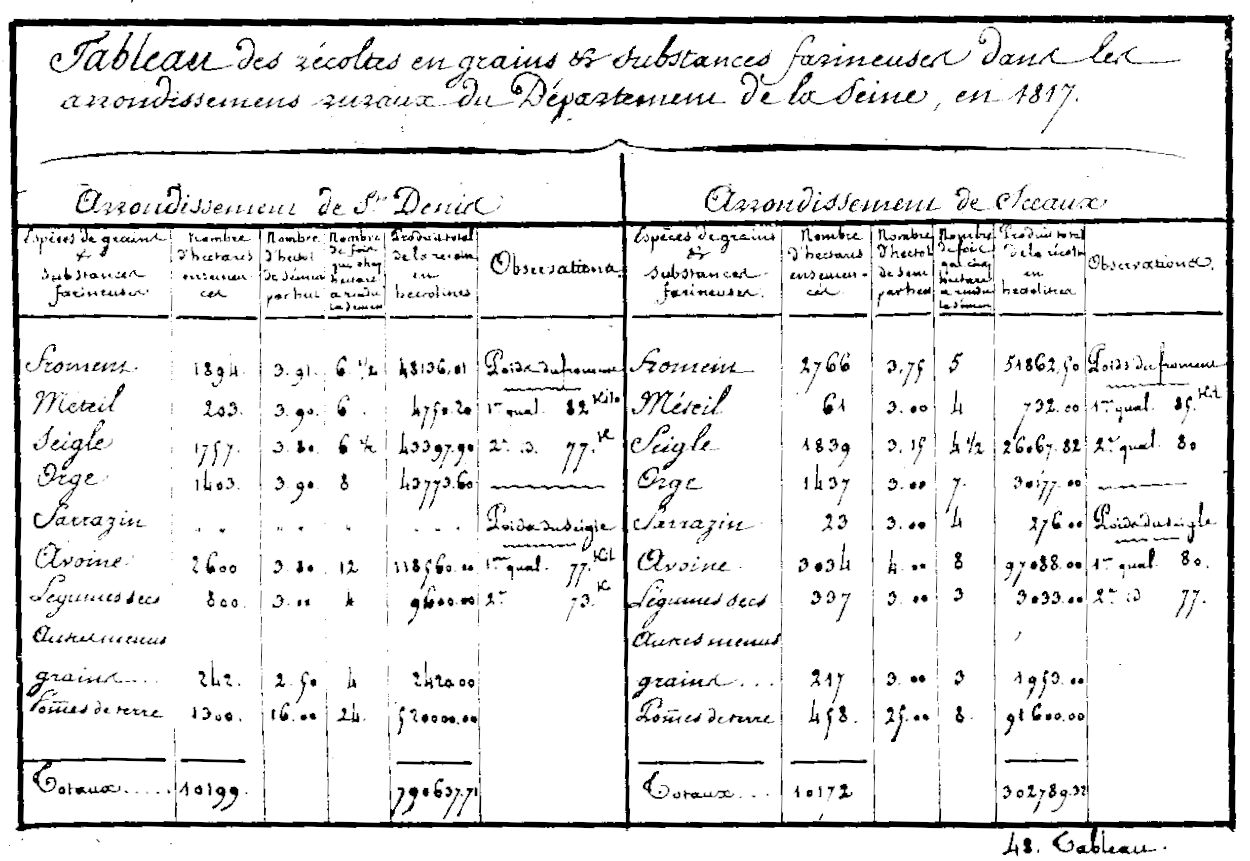 Tableau des récoltes en grains & substances farineuses dans les
arrondissemens ruraux du Département de la Seine, en 1817.
Arrondissement de St Denis
Arrondissement de Sceaux
Espèces de grains & substances farineuses
Nombre d'hectares ensemencés
Nombre d'hectol de semce par hect
Nombre de fois que chaq hectare a rendu la semce
Produit total de la récolte en hectolitres
Observations.
Espèces de grains & substances farineuses.
Nombre d'hectares ensemencés
Nombre d'hectol de sem par hect
Nombre de fois que chaq hectare a rendu la semce
Produit total de la récolte en hectolitres
Observations.
Froment 1894. 3.91. 6 1/2 48136.01 Poids du froment Froment 2766 3.75 5 51862.50 Poids du froment
Méteil 203. 3.90. 6. 4750.20 1re qual. 82 Kilo Méteil 61 3.00 4 732.00 1re qual. 85. Kil
Seigle 1757. 3.80. 6 1/2 43397.90 2e d. 77. K Seigle 1839 3.15 4 1/2 26067.82 2e qual. 80
Orge 1403. 3.90. 8 43773.60 Orge 1437 3.00 7. 30177.00
Sarrazin " " " " " " " Poids du Seigle Sarrazin 23 3.00 4 276.00 Poids du Seigle
Avoine 2600 3.80 12 118560.00 1re qual. 77. Kil Avoine 3034 4.00 8 97088.00 1re qual. 80.
Légumes secs 800. 3.00 4 9600.00 2e 73. K Légumes secs 337 3.00 3 3033.00 2e d 77.
Autres menus Autres menus
grains.... 242. 2.50 4 2420.00 grains... 217 3.00 3 1953.00
Pommes de terre 1300. 16.00 24. 520000.00 Pommes de terre 458. 25.00 8. 91600.00
Totaux..... 10199. 790637.71 Totaux.... 10172 302789.32
48. Tableau.